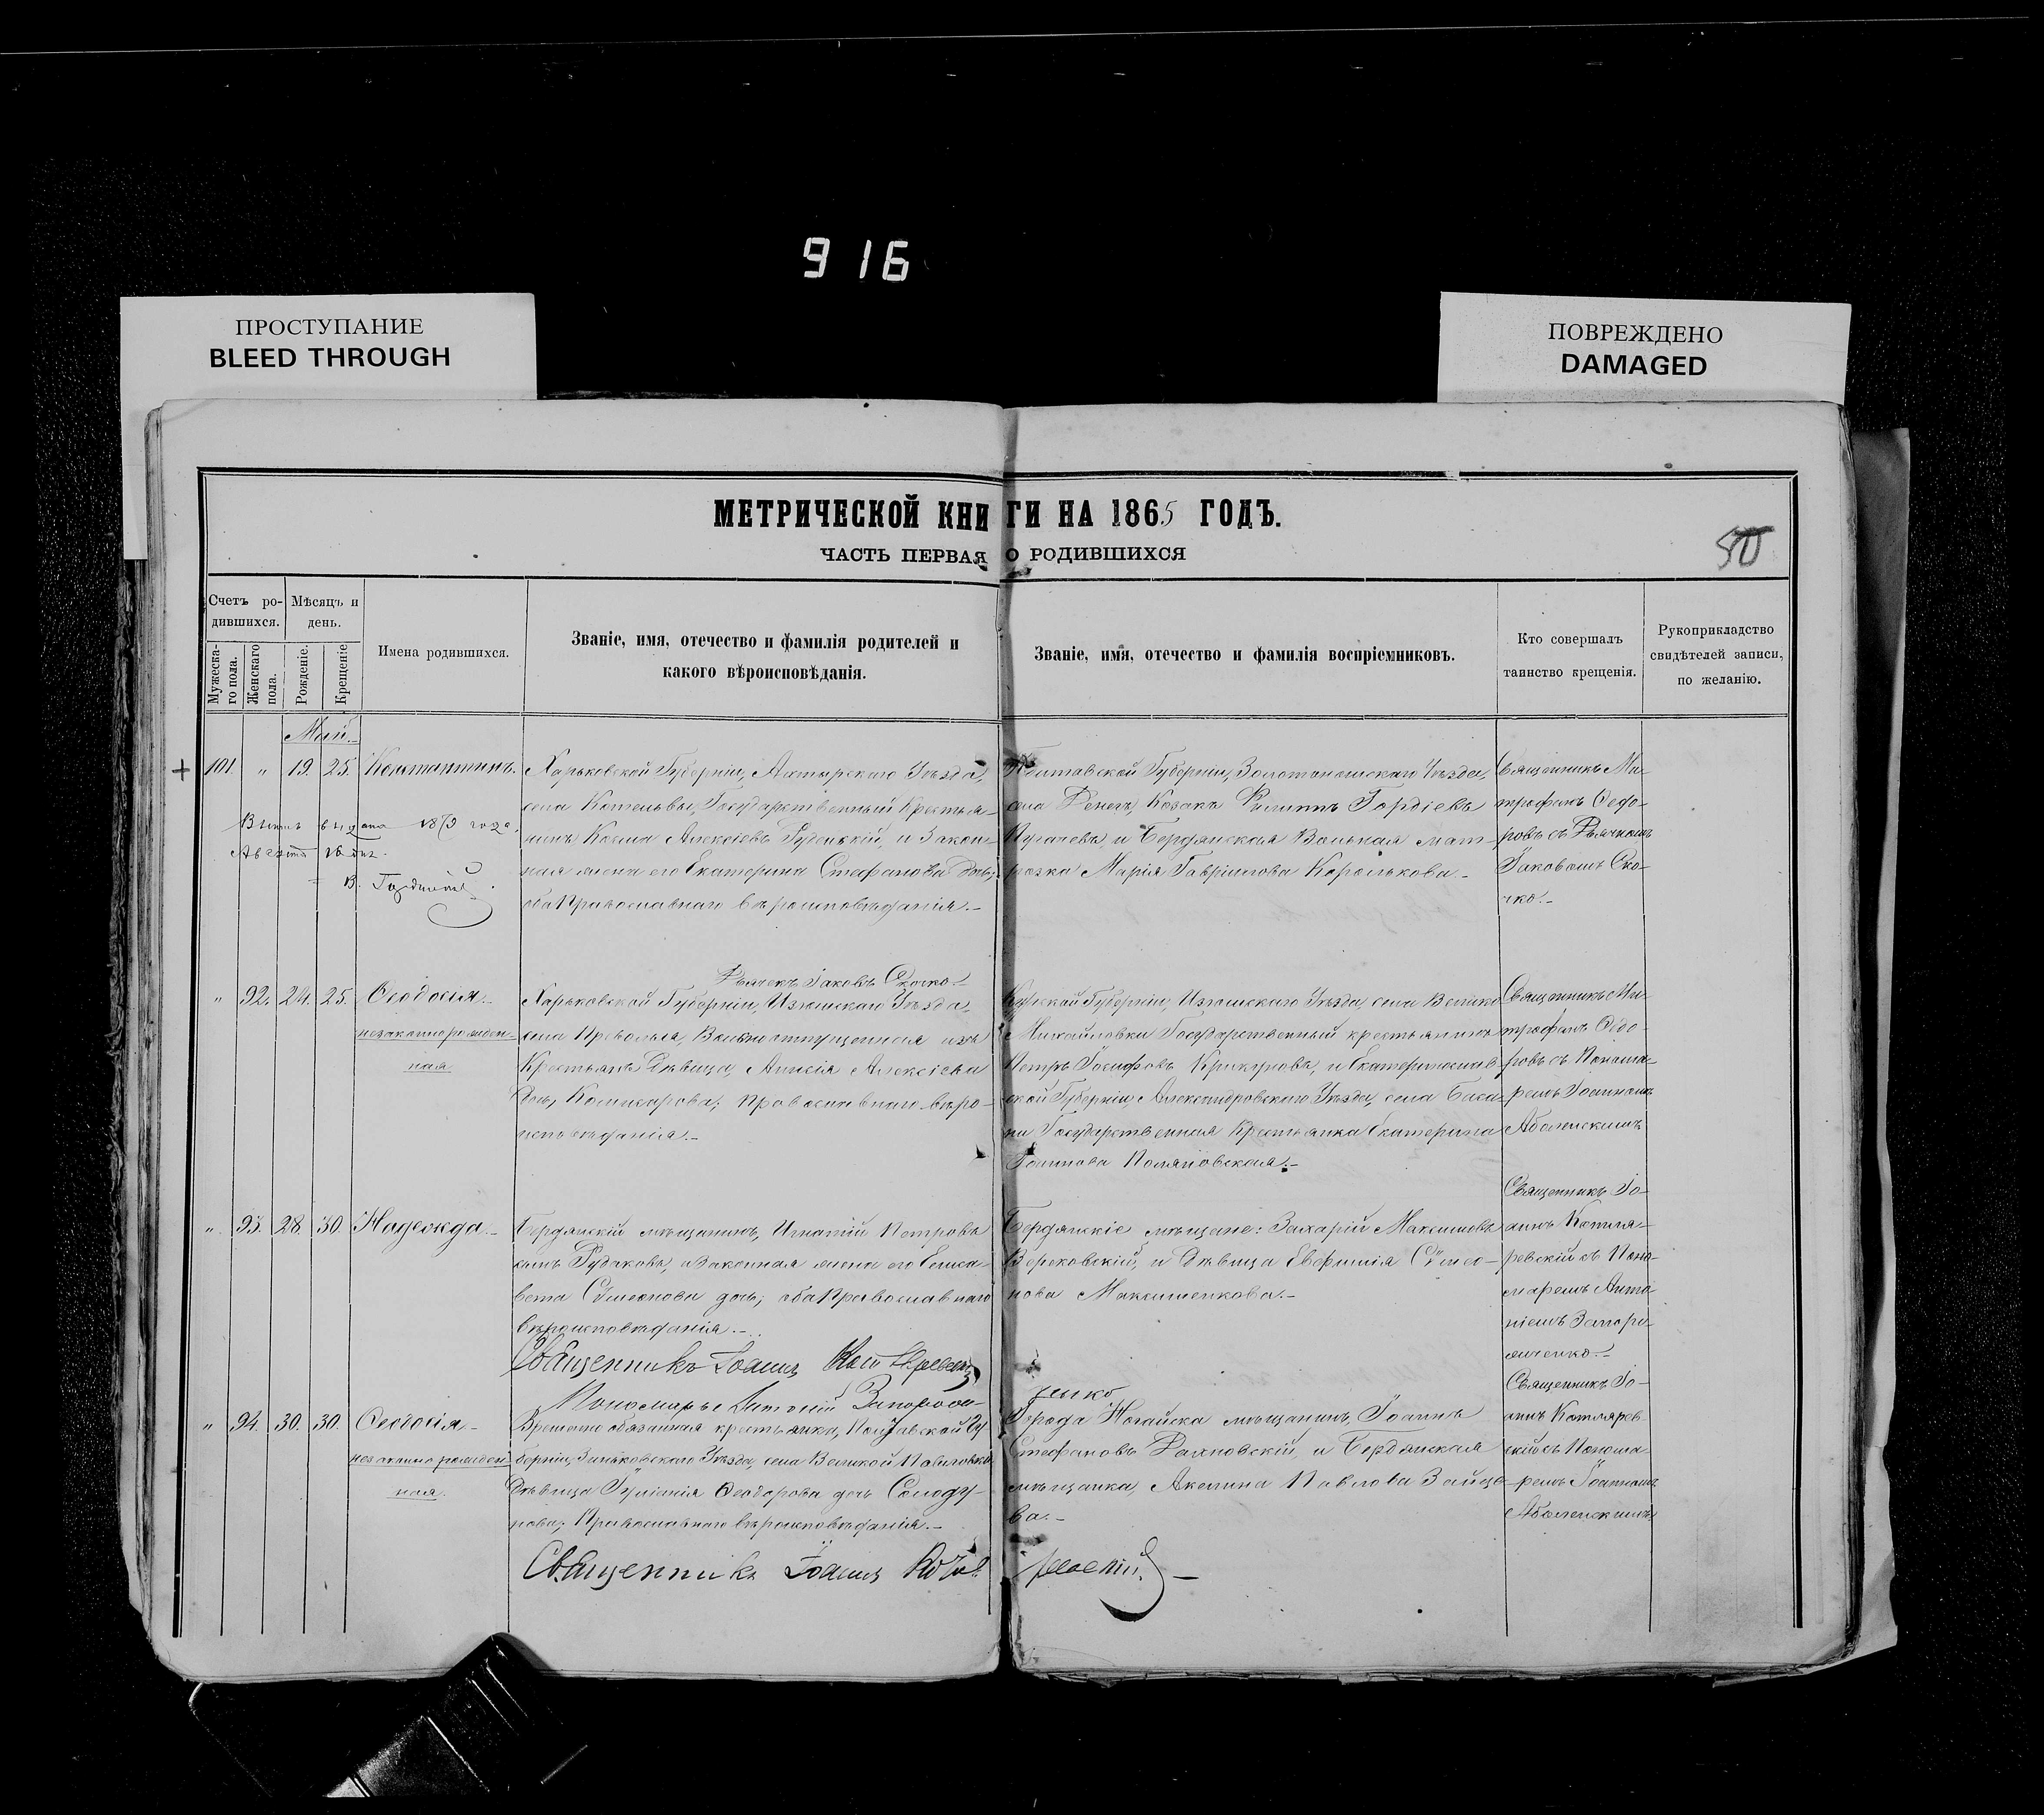 916
ПРОСТУПАНИЕ
BLEED THROUGH
ПОВРЕЖДЕНО
DAMAGED
МЕТРИЧЕСКОЙ КНИГИ НА 1865 ГОДЪ.
ЧАСТЬ ПЕРВАЯ О РОДИВШИХСЯ
50
Счетъ ро-
дившихся.
Мѣсяцъ и
день.
Мужеска-
го пола.
Женскаго
пола.
Рожденіе.
Крещеніе
Имена родившихся.
Званіе, имя, отечество и фамилія родителей и
какого вѣроисповѣданія.
Званіе, имя, отечество и фамилія воспріемниковъ.
Кто совершалъ
таинство крещенія.
Рукоприкладство
свидѣтелей записи,
по желанію.
Май.
+ 101 " 19. 25. Константинъ.
выдана 1873 года
Августа
Харьковской Губерніи, Ахтырскаго Уѣзда,
села Котельвы, Государственный Крестья-
нинъ Косма Алексіевъ и Закон-
ная жена его Екатерина Стефанова дочь;
оба Православнаго вѣроисповѣданія.-
Дьячекъ Іаковъ
Полтавской Губерніи, Золотоношскаго Уѣзда,
села Козакъ Филиппъ Гордіевъ
Пугачевъ, и Бердянская Вольная мат-
розка Марія Гавріилова Королькова.-
Священникъ Ми-
трофанъ Ѳедо-
ровъ съ Дьячкомъ
Іаковомъ Ско-
чко.-
" 92. 24. 25. Ѳеодосія.-
незаконнорожден-
ная
Харьковской Губерніи, Изюмскаго Уѣзда,
села Преволья, Вольноотпущенная изъ
Крестьянъ Дѣвица, Анисія Алексіева
дочь, Комисарова; Православнаго вѣро-
исповѣданія.-
Курской Губерніи, Изюмскаго Уѣзда, села Велико
Михайловки Государственный крестьянинъ
Петръ Іосифовъ Крикуновъ, и Екатеринослав-
ской Губерніи, Александровскаго Уѣзда, села
Государственная Крестьянка Екатерина
Іоаннова Поляновская.-
Священникъ Ми-
трофанъ Ѳедо-
ровъ съ Понома-
ремъ Іоанномъ
Аболенскимъ
" 93. 28. 30. Надежда.-
Бердянскій мѣщанинъ, Игнатій Петровъ
сынъ Рудаковъ, и Законная жена его Елиса-
вета Сѵмеонова дочь; оба Православнаго
вѣроисповѣданія.-
Священникъ Іоаннъ Котляревскій
Пономарь Антоній Запорожченко
Бердянскіе мѣщане: Захарій Максимовъ
Верековскій, и Дѣвица Евфимія Сѵмео-
нова Максименкова.-
Священникъ Іо-
аннъ Котля-
ревскій съ Поно-
маремъ Анто
ніемъ Запоро-
жченко.-
" 94. 30. 30. Ѳеодосія-
незаконнорожден
ная.
Временно обязанная крестьянка, Полтавской Гу
берніи, Зиньковскаго Уѣзда, села Великой Павловки
Дѣвица Іуліанія Ѳеодорова дочь Солоду-
нова; Православнаго вѣроисповѣданія.-
Города Ногайска мѣщанинъ, Іоаннъ
Стефановъ и Бердянская
мѣщанка, Акелина Павлова Зайце-
ва.-
Священникъ Іо-
аннъ Котлярев-
скій съ Понома-
ремъ Іоанномъ
Аболенскимъ
Священникъ Іоаннъ Котляревскій.-